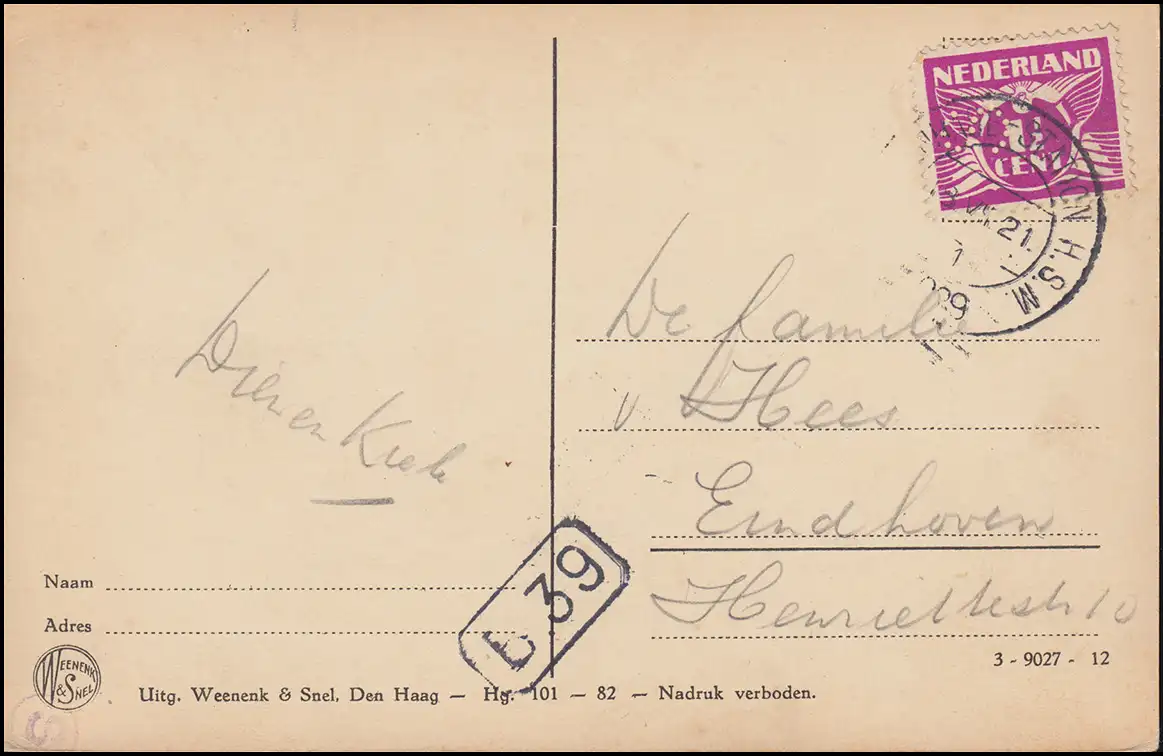 NEDERLAND
CENT
STATION H.S.M.
21.
1
De familie
v Hees
Eindhoven
Henriettestr 10
Dien en
B 39
Naam
Adres
WEENENK & SNEL
3 - 9027 - 12
Uitg. Weenenk & Snel, Den Haag — Hg. 101 — 82 — Nadruk verboden.
S